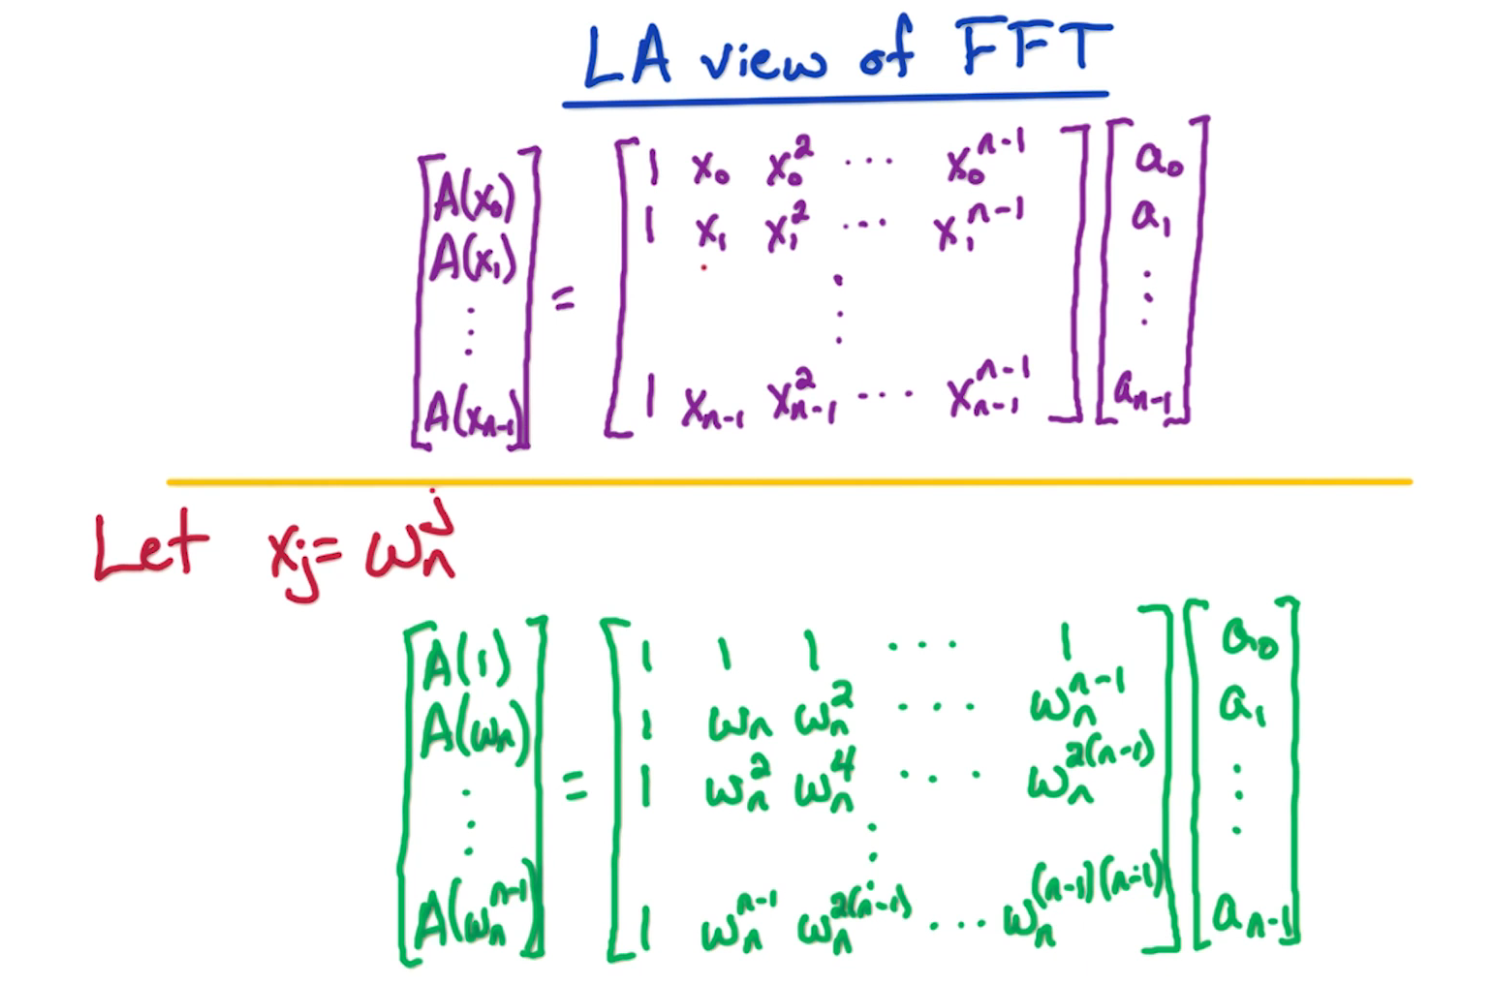 LA view of FFT
[A(x₀) A(x₁) ⋮ A(xₙ₋₁)] = [1 x₀ x₀² ⋯ x₀ⁿ⁻¹
1 x₁ x₁² ⋯ x₁ⁿ⁻¹
⋮
1 xₙ₋₁ xₙ₋₁² ⋯ xₙ₋₁ⁿ⁻¹] [a₀ a₁ ⋮ aₙ₋₁]
Let xⱼ = ωₙʲ
[A(1) A(ωₙ) ⋮ A(ωₙⁿ⁻¹)] = [1 1 1 ⋯ 1
1 ωₙ ωₙ² ⋯ ωₙⁿ⁻¹
1 ωₙ² ωₙ⁴ ⋯ ωₙ²⁽ⁿ⁻¹⁾
⋮
1 ωₙⁿ⁻¹ ωₙ²⁽ⁿ⁻¹⁾ ⋯ ωₙ⁽ⁿ⁻¹⁾⁽ⁿ⁻¹⁾] [a₀ a₁ ⋮ aₙ₋₁]